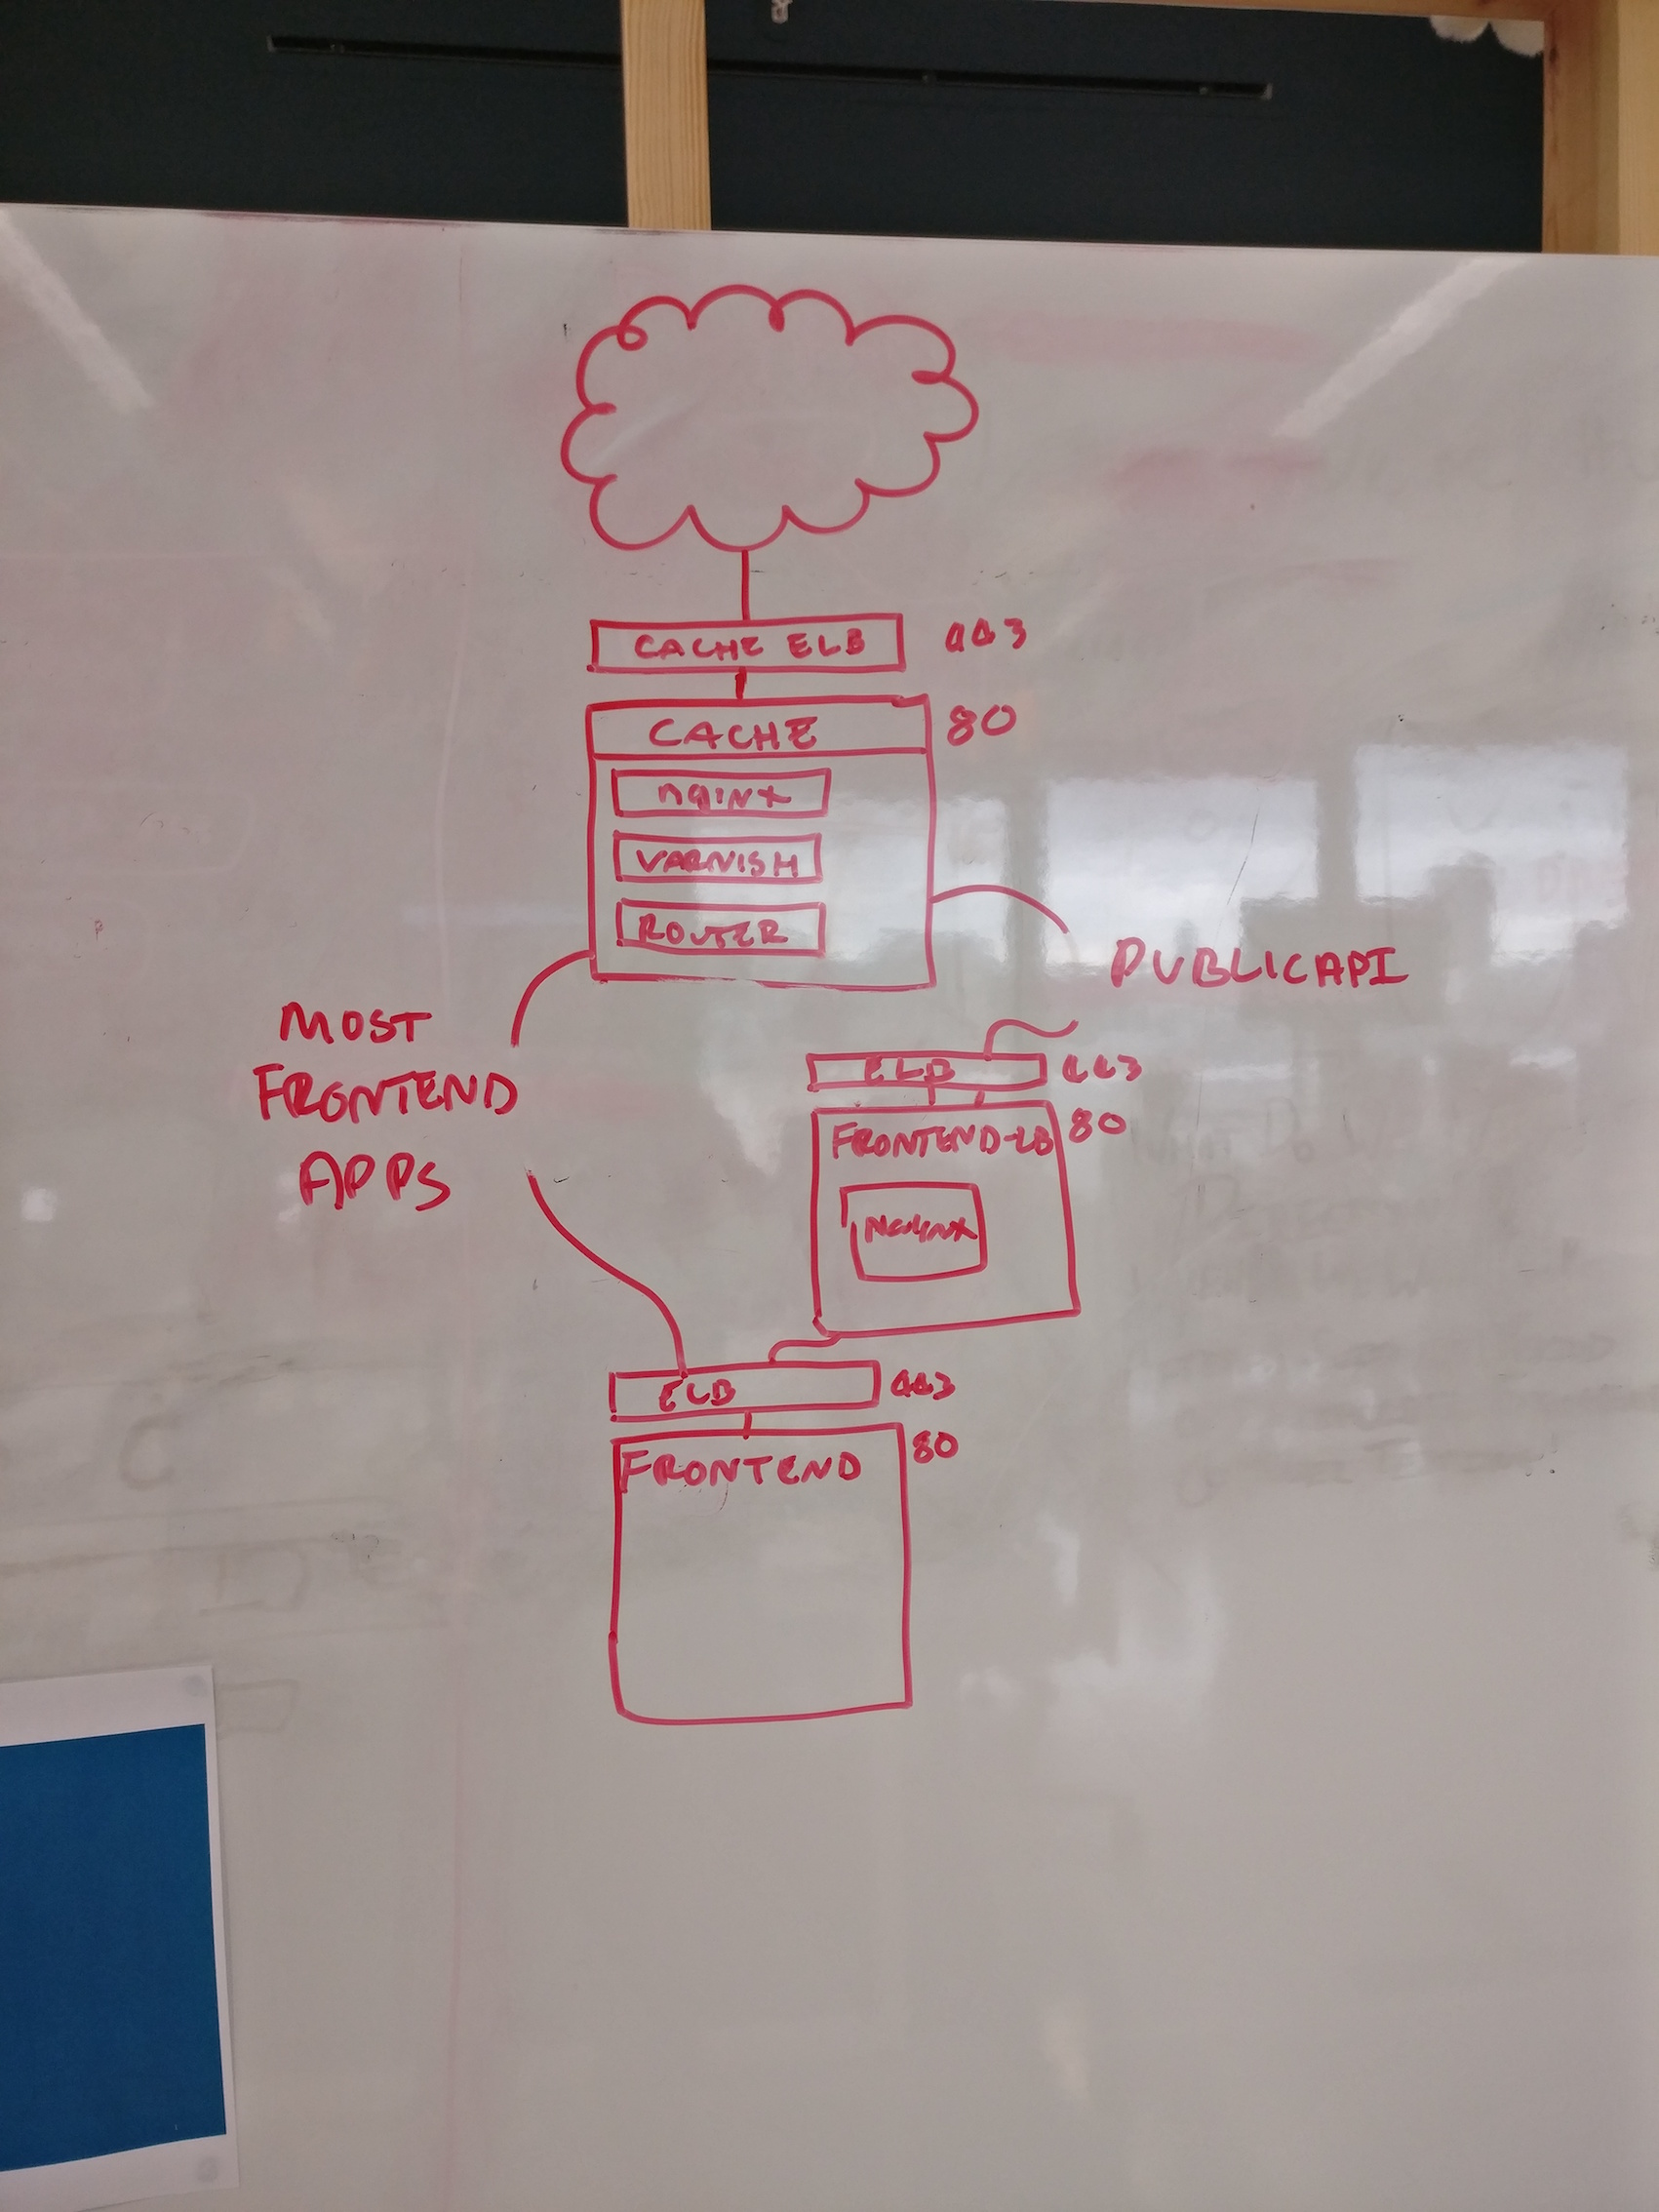 CACHE ELB 443
CACHE 80
nginx
VARNISH
ROUTER
PUBLICAPI
MOST
FRONTEND
APPS
ELB 443
FRONTEND-LB 80
Nginx
ELB 443
FRONTEND 80